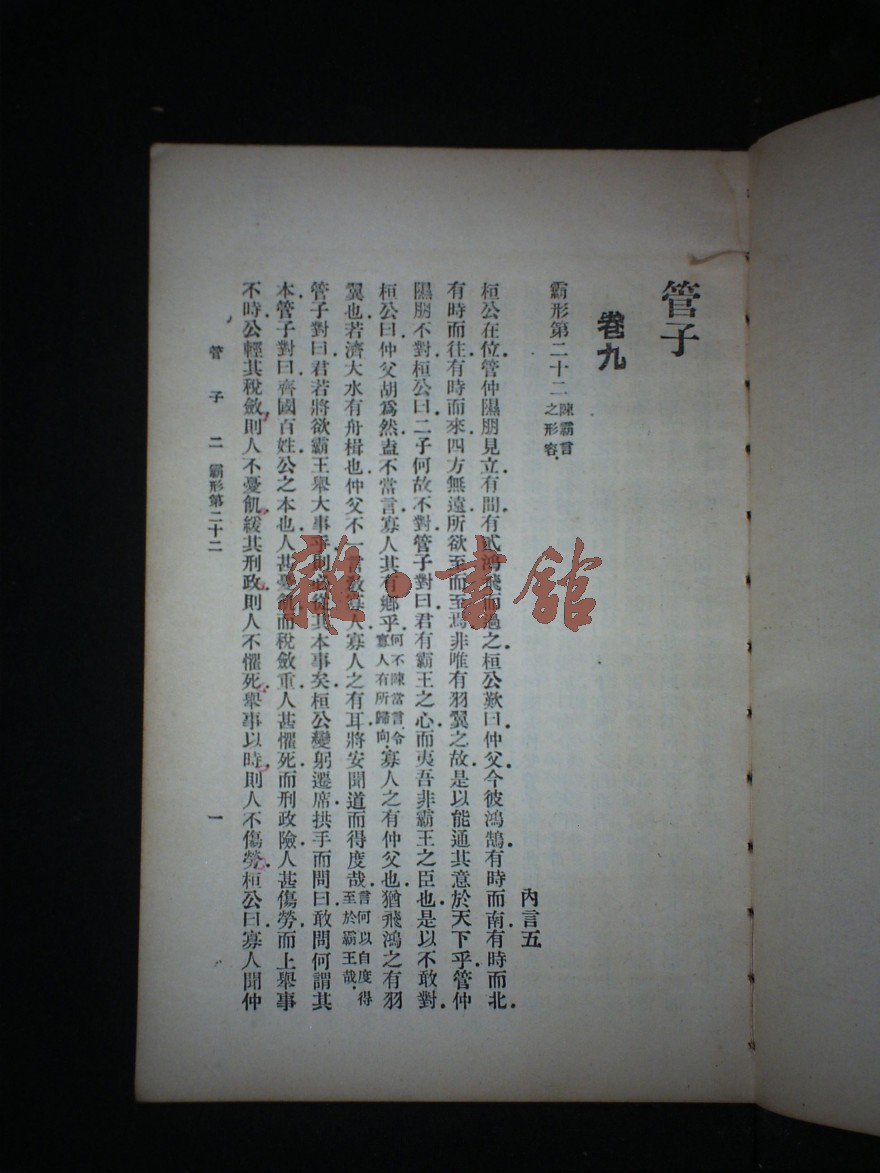 管子
卷九
霸形第二十二 陳霸言之形容．
內言五
桓公在位．管仲隰朋見．立有間．有貳鴻飛而過之．桓公歎曰．仲父．今彼鴻鵠有時而南．有時而北．
有時而往．有時而來．四方無遠．所欲至而至焉．非唯有羽翼之故．是以能通其意於天下乎．管仲
隰朋不對．桓公曰．二子何故不對．管子對曰．君有霸王之心．而夷吾非霸王之臣也．是以不敢對．
桓公曰．仲父胡爲然．盍不當言．寡人其有鄉乎．何不陳當言．令寡人有所歸向．寡人之有仲父也．猶飛鴻之有羽
翼也．若濟大水有舟楫也．仲父不一言教寡人．寡人之有耳．將安聞道而得度哉．言何以自度得至於霸王哉．
管子對曰．君若將欲霸王舉大事乎．則必從其本事矣．桓公變躬遷席．拱手而問曰．敢問何謂其
本．管子對曰．齊國百姓．公之本也．人甚憂飢而稅斂重．人甚懼死而刑政險．人甚傷勞而上舉事
不時．公輕其稅斂．則人不憂飢．緩其刑政．則人不懼死．舉事以時．則人不傷勞．桓公曰．寡人聞仲
管子 二 霸形第二十二
一
雜·書館